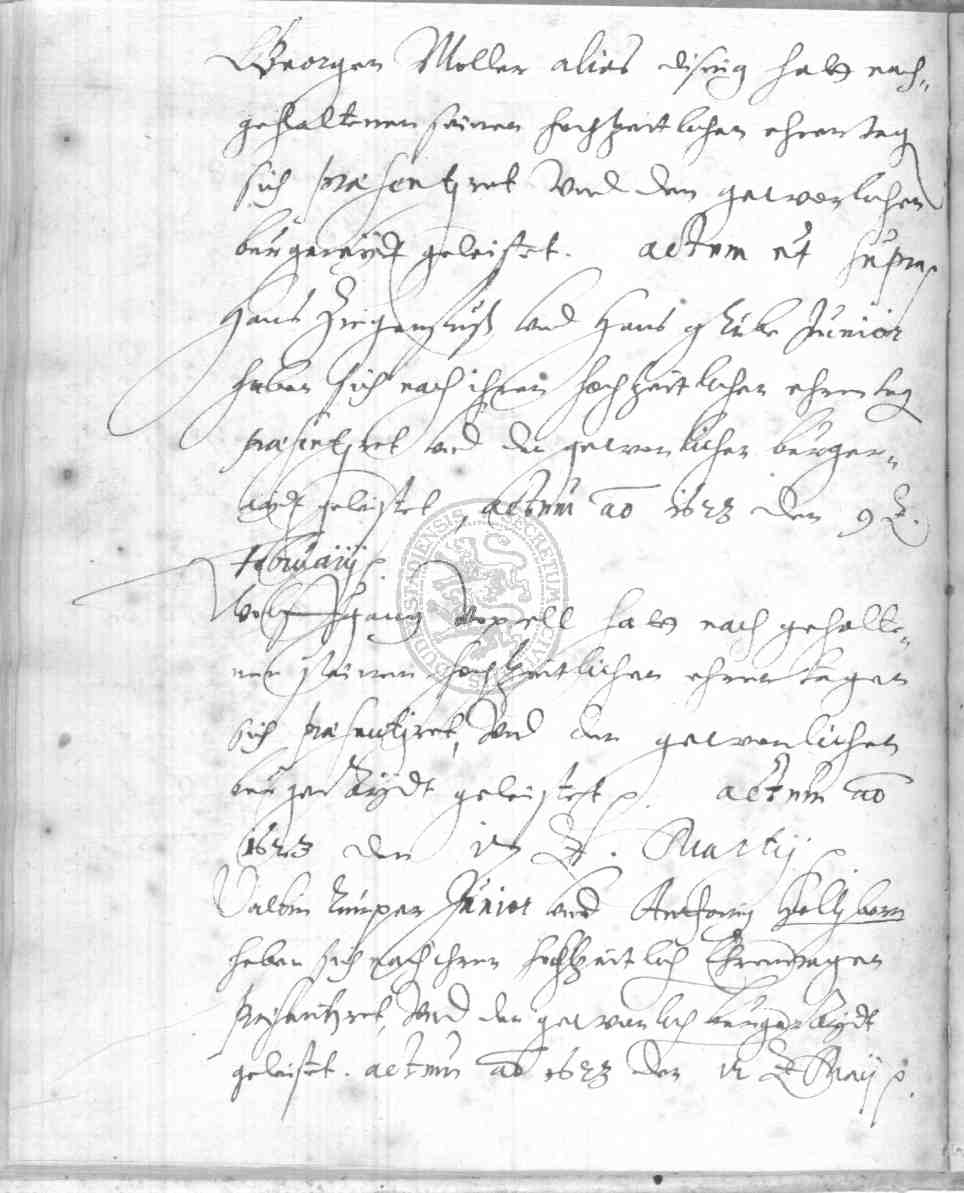 Georgen Moller alias disrug hatt nach=
gehaltenen seinen hochzeitlichen ehrentag
sich præsentyret Vnd den gewonlichen
burgereydt geleistet. actum ut supra
Hans Ziegenfuß vnd Hans Junior
haben sich nach ihren hochzeitlichen ehrentag
præsentyret vnd den gewonlichen burger=
aydt geleistet, actum ao 1623 den 9
februarij
Wolfgang hatt nach gehalte=
nen seinen hochzeitlichen ehrentagen
sich præsentyret, Vnd den gewonlichen
burger Aydt geleistet. actum ao
1623 den Martij
Valtin Junior vnd Anthonig
haben sich nach ihren hochzeitlich Ehrentagen
presentyret, Vnd den gewonlich burger Aydt
geleistet. actum ao 1623 den 12 Maij